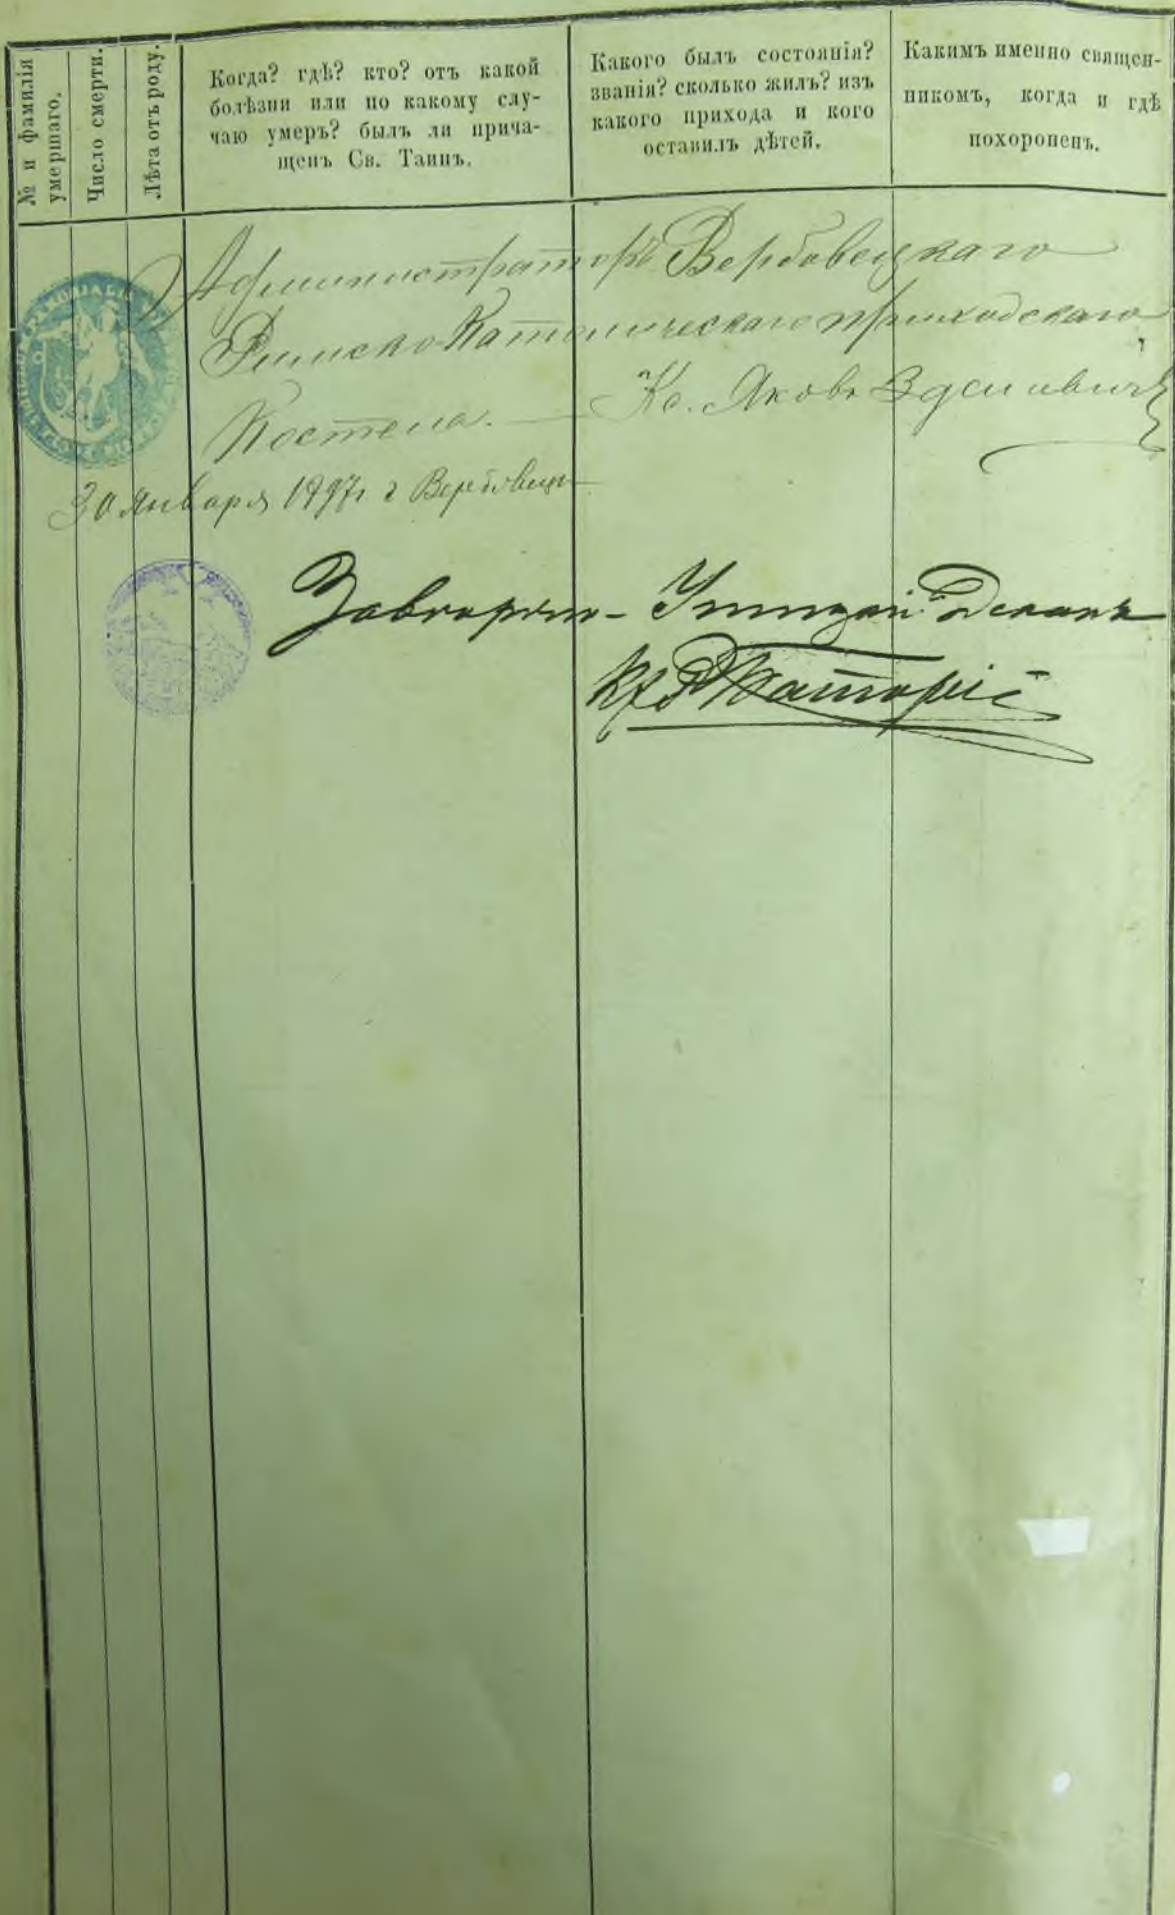 № и фамилія
умершаго.
Число смерти.
Лѣта отъ роду.
Когда? гдѣ? кто? отъ какой
болѣзни или по какому слу-
чаю умеръ? былъ ли прича-
щенъ Св. Таинъ.
Какого былъ состоянія?
званія? сколько жилъ? изъ
какого прихода и кого
оставилъ дѣтей.
Какимъ именно священ-
никомъ, когда и гдѣ
похороненъ.
Администраторъ Вербовецкаго
Римско Католическаго приходскаго
Костела. Кс. Яковъ
30 Января 1897 г
Деканъ